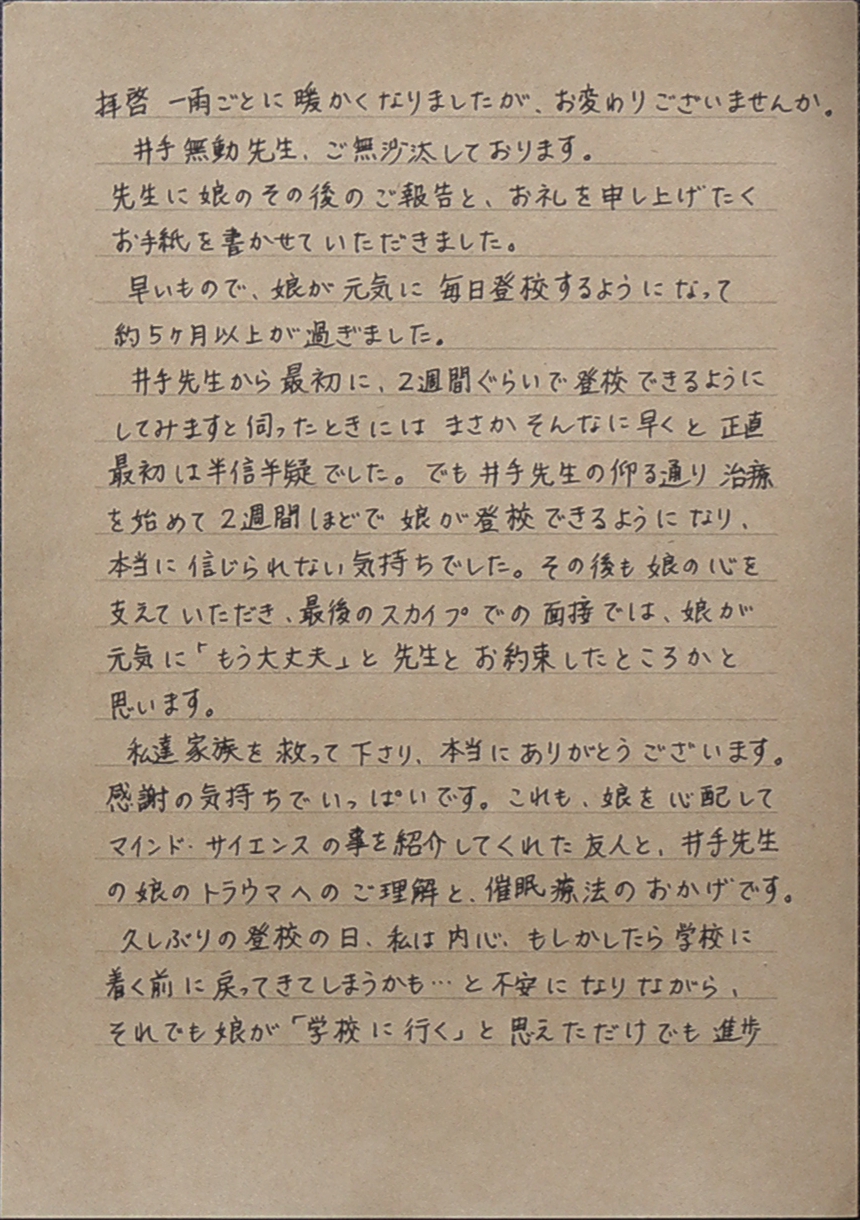 拝啓 一雨ごとに暖かくなりましたが、お変わりございませんか。
井手無動先生、ご無沙汰しております。
先生に娘のその後のご報告と、お礼を申し上げたく
お手紙を書かせていただきました。
早いもので、娘が元気に毎日登校するようになって
約5ヶ月以上が過ぎました。
井手先生から最初に、2週間ぐらいで登校できるように
してみますと伺ったときにはまさかそんなに早くと正直
最初は半信半疑でした。でも井手先生の仰る通り治療
を始めて2週間ほどで娘が登校できるようになり、
本当に信じられない気持ちでした。その後も娘の心を
支えていただき、最後のスカイプでの面接では、娘が
元気に「もう大丈夫」と先生とお約束したところかと
思います。
私達家族を救って下さり、本当にありがとうございます。
感謝の気持ちでいっぱいです。これも、娘を心配して
マインド・サイエンスの事を紹介してくれた友人と、井手先生
の娘のトラウマへのご理解と、催眠療法のおかげです。
久しぶりの登校の日、私は内心、もしかしたら学校に
着く前に戻ってきてしまうかも…と不安になりながら、
それでも娘が「学校に行く」と思えただけでも進歩